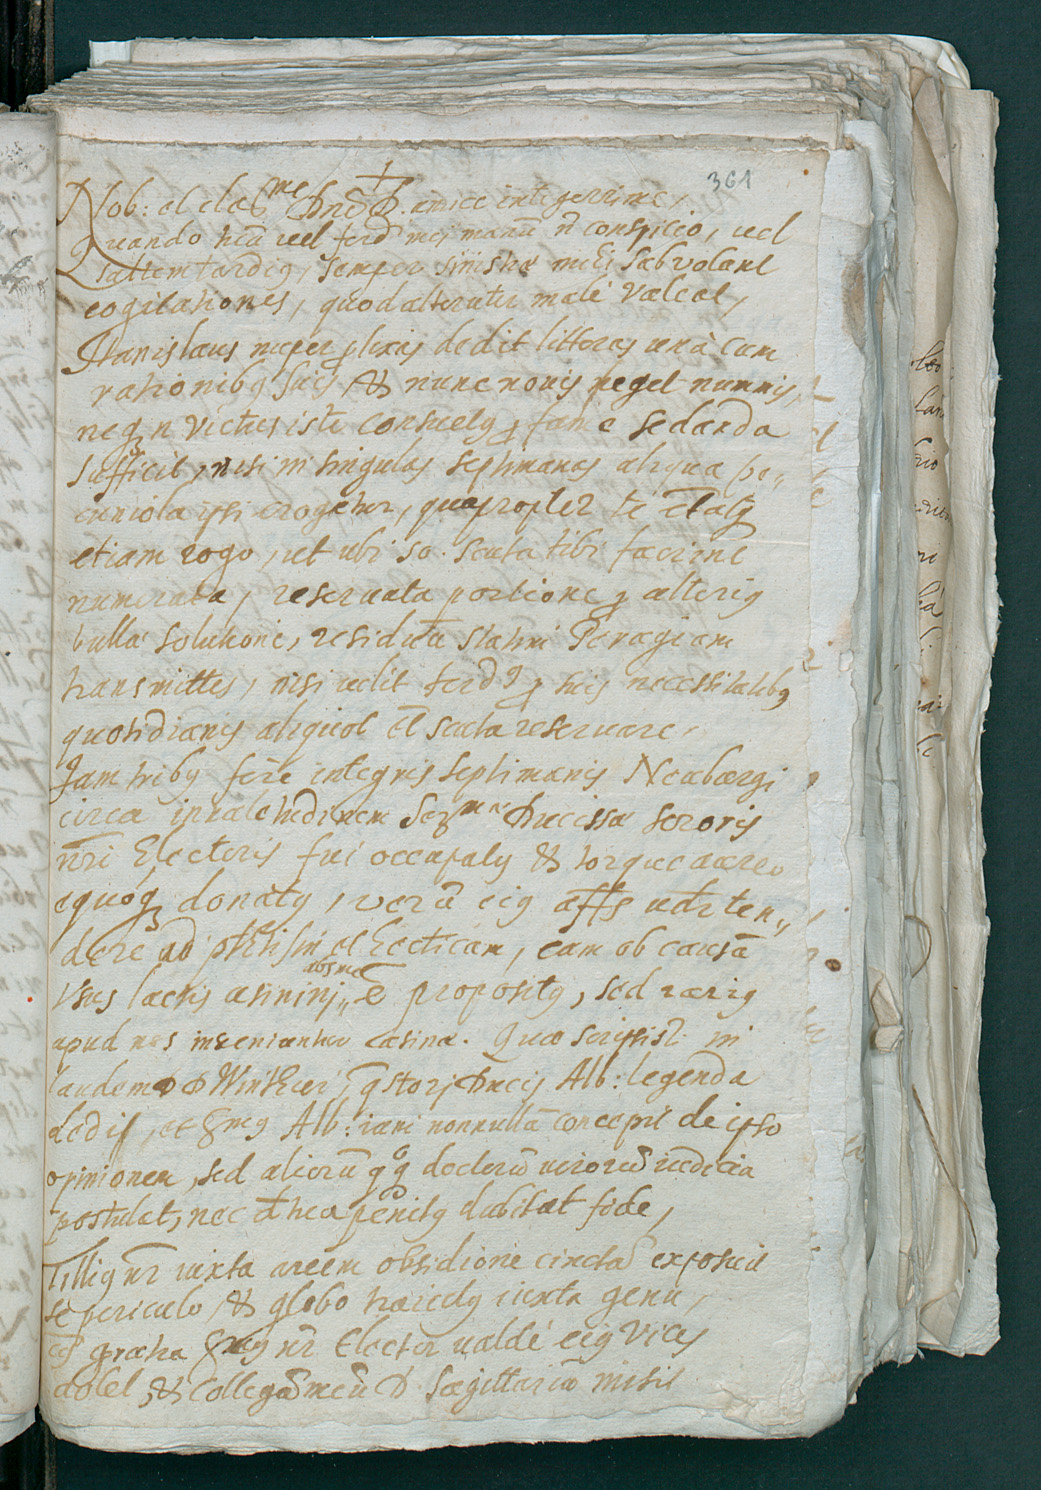 361
+
Nob: et clar^me Dne D. amice integerrime,
Quando tuā vel ferd^i mei manū n̄ conspicio, vel
saltem tardiq, semper sinistræ mihi subvolant
cogitationes, quod alteruter malè valeat,
Stanislaus nuper plixas dedit litteras unà cum
rationibq suis & nunc novis reget nummis,
neqȝ n victus iste consuetq p fame sedanda
sufficit, nisi in singulas septimanas aliqua pe„
cuniola ipsi erogetur, quapropter te
etiam rogo, ut ubi 50. scuta tibi fuerint
numerata, reservata portione p alteriq
bullæ solutione, residuū statim Perugiam
transmittes, nisi velit ferd^9 p suis necessitatibq
quotidianis aliquot scuta reservare.
Jam tribq fere integris septimanis Neabergi
circa invaletudinem Ser^mæ Ducissæ sororis
nr̄i Electoris fui occupatq & torque aureo
equoqȝ donatq, verū eiq affs vdr̄ ten„
dere ad phthisin et hecticam, eam ob causā
usus lactis asinini abs me ē propositq, sed rariq
apud nos inveniantur asinæ. Quæ scripsist. in
laudem D Winther, qstoris Ducis Alb: legenda
dedi, et Smq Alb: iam nonnullā concepit de ipso
opinionem, sed aliorū qqȝ doctorū virorū iudicia
postulat, nec tua penitq dubitat fide,
Tilliq nr̄ iuxta arcem obsidione cinctā exposuit
se periculo, & globo traiectq iuxta genu,
gratia Smq nr̄ Elector valdè eiq vices
dolet, & collegā meū D Sagittariū misit